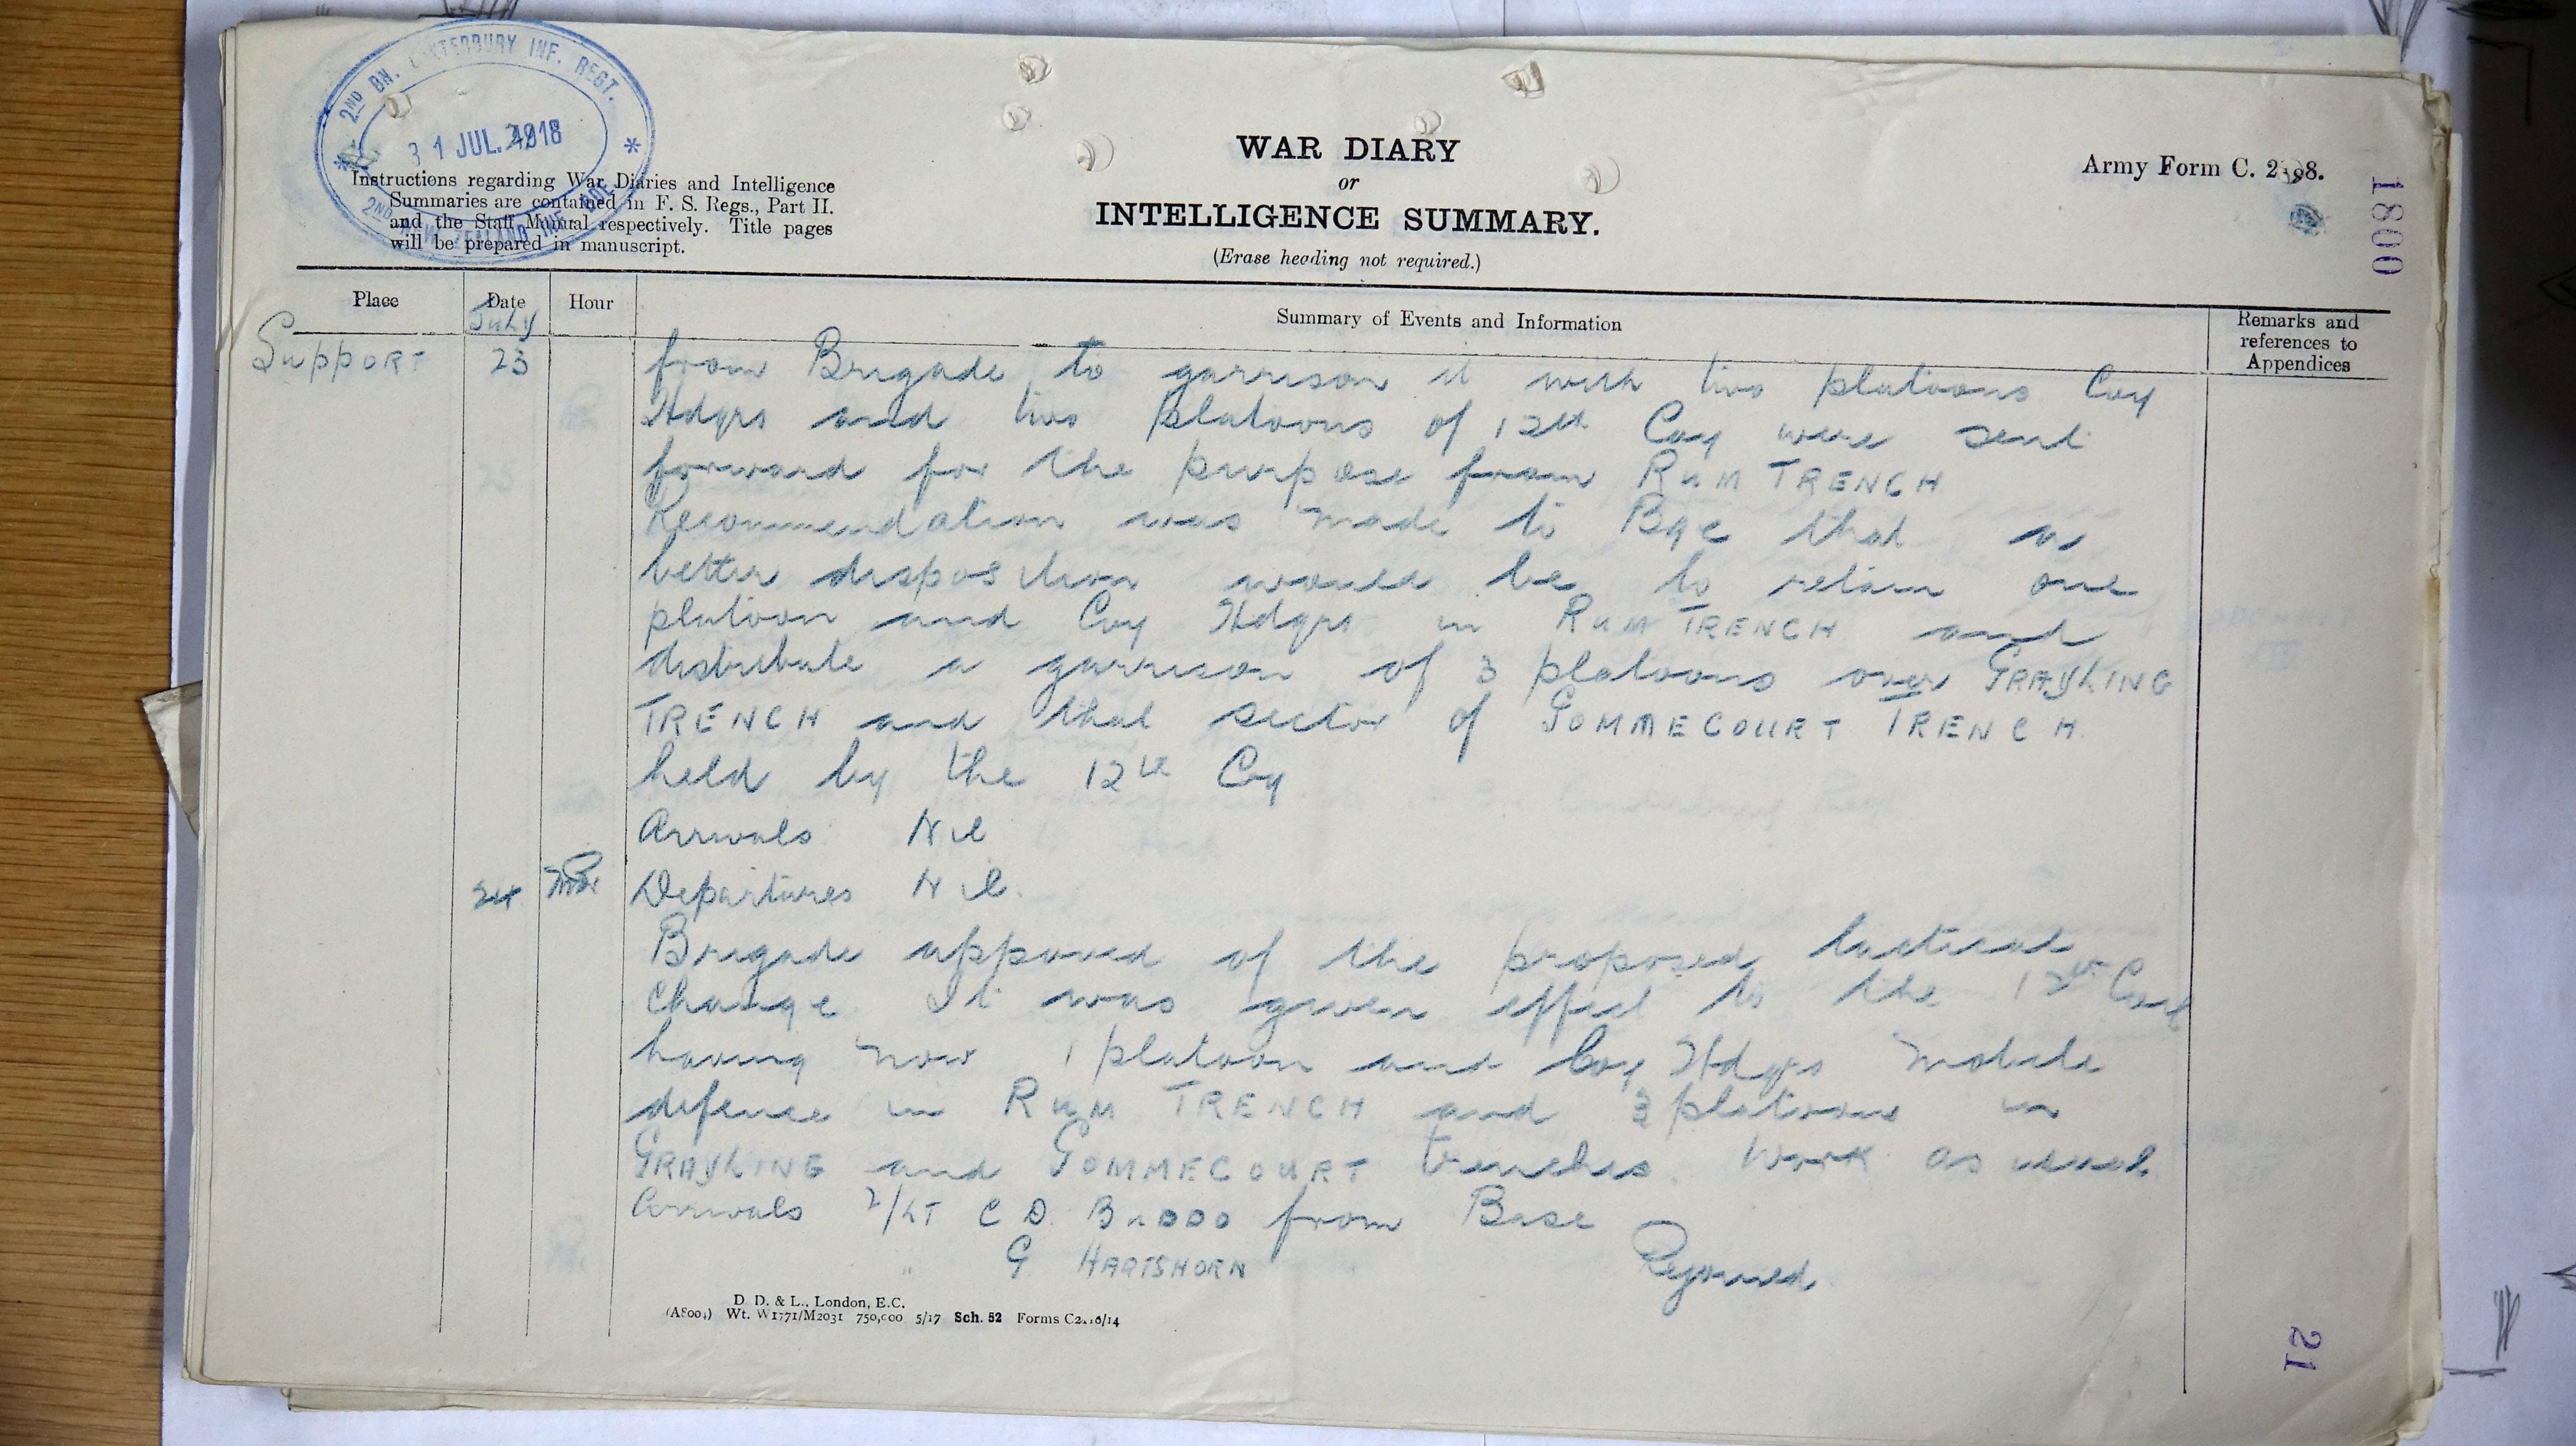 2ND BN. CANTERBURY INF. REGT.
31 JUL. 1918
2ND NEW ZEALAND INF. BDE
Instructions regarding War Diaries and Intelligence
Summaries are contained in F. S. Regs., Part II.
and the Staff Manual respectively. Title pages
will be prepared in manuscript.
WAR DIARY
or
INTELLIGENCE SUMMARY.
(Erase heading not required.)
Army Form C. 2118.
1800
Place Date Hour Summary of Events and Information Remarks and
references to
Appendices
July
Support 23 from Brigade to garrison it with two platoons Coy
Hdqrs and two platoons of 12th Coy were sent
forward for the purpose from RUM TRENCH
Recommendation was made to Bge that a
better disposition would be to retain one
platoon and Coy Hdqrs in RUM TRENCH and
distribute a garrison of 3 platoons over GRAYLING
TRENCH and that sector of GOMMECOURT TRENCH
held by the 12th Coy
Arrivals Nil
24 Departures Nil.
Brigade appoved of the proposed tactical
change. It was given effect to the 12th
having now 1 platoon and Coy Hdqrs mobile
defence in RUM TRENCH and 3 platoons in
GRAYLING and GOMMECOURT trenches. Work as usual.
Arrivals 2/LT C D. BUDDO from Base
" G HARTSHORN Rejoined.
D. D. & L., London, E.C.
(A8004) Wt. W1771/M2031 750,000 5/17 Sch. 52 Forms C2118/14
21